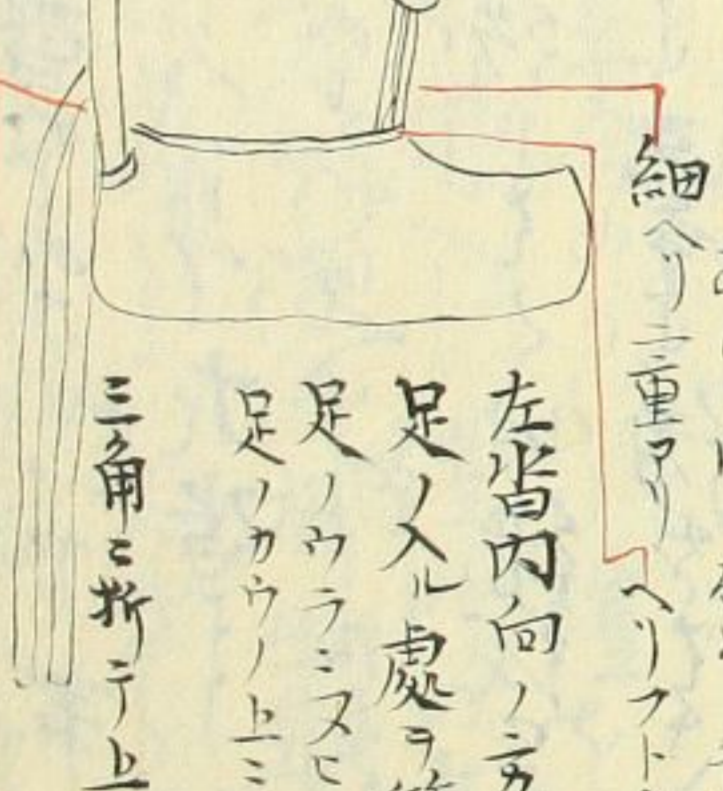 細ヘリ二重アリ
ヘリフト
左沓内向ノ方
足ノ入ル處ヲ
足ノウラニヌヒ
足ノカウノ上ニ
三角ニ折テ上